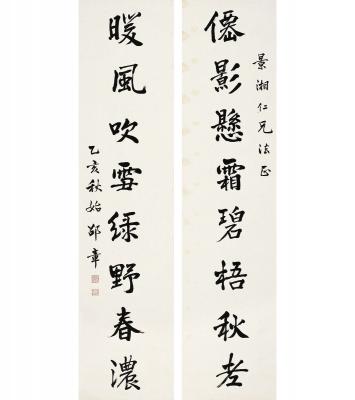 景湘仁兄法正
僊影懸霜碧梧秋老
暖風吹雪綠野春濃
乙亥秋始邵章